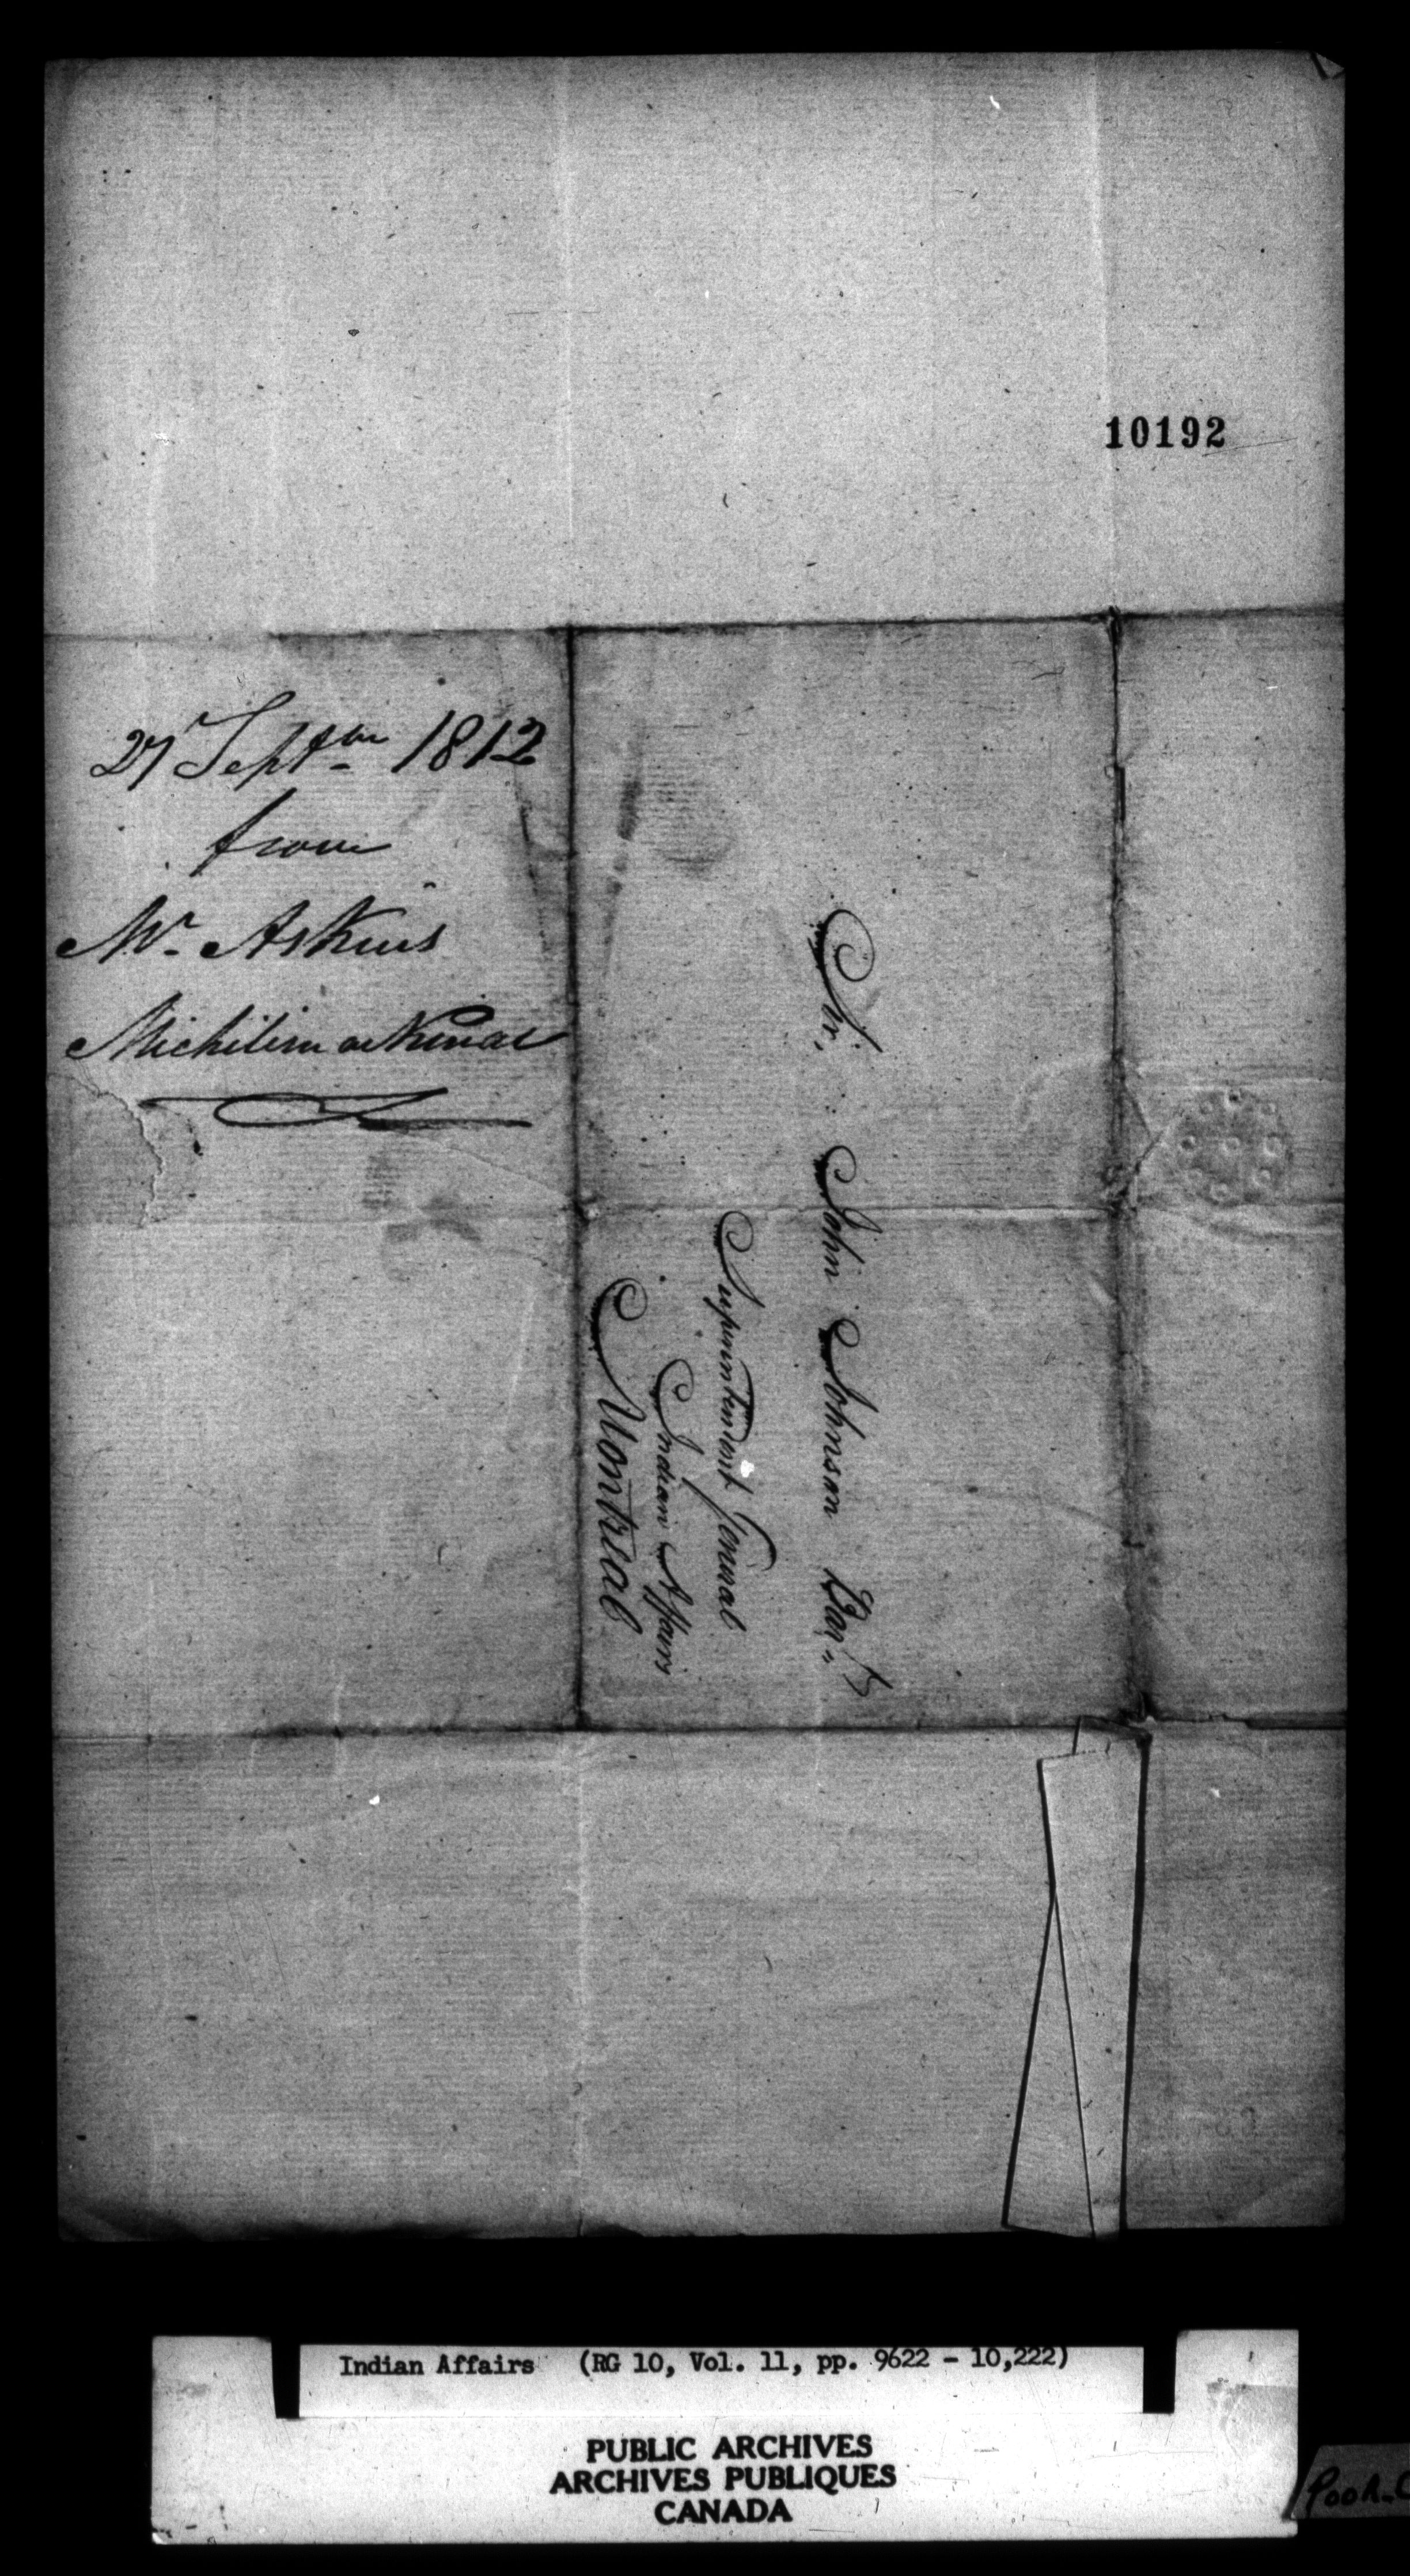 10192
27 Septbr 1812
from
Mr. Askins
Michilimackinac
Sir. John Johnson Bart
Superintendent General
Indian Affairs
Montreal
Indian Affairs (RG 10, Vol. 11, pp. 9622 - 10,222)
PUBLIC ARCHIVES
ARCHIVES PUBLIQUES
CANADA